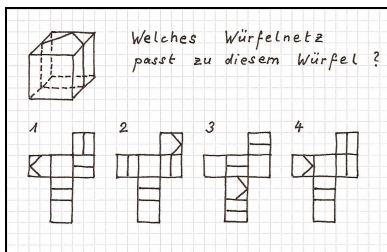 Welches Würfelnetz
passt zu diesem Würfel ?
1 2 3 4